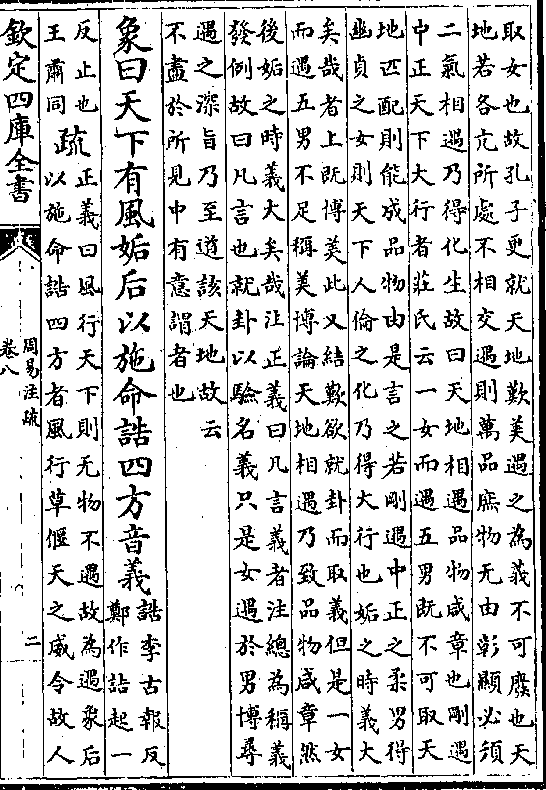 取女也故孔子更就天地歎美遇之為義不可廢也天
地若各亢所處不相交遇則萬品庶物无由彰顯必須
二氣相遇乃得化生故曰天地相遇品物咸章也剛遇
中正天下大行者莊氏云一女而遇五男既不可取天
地匹配則能成品物由是言之若剛遇中正之柔男得
幽貞之女則天下人倫之化乃得大行也姤之時義大
矣哉者上既博美此又結歎欲就卦而取義但是一女
而遇五男不足稱美博論天地相遇乃致品物咸章然
後姤之時義大矣哉注正義曰凡言義者注總為稱義
發例故曰凡言也就卦以驗名義只是女遇於男博尋
遇之深旨乃至道該天地故云
不盡於所見中有意謂者也
象曰天下有風姤后以施命誥四方音義
誥李古報反
鄭作詰起一
反止也
王肅同
疏
正義曰風行天下則无物不遇故為遇象后
以施命誥四方者風行草偃天之威令故人
欽定四庫全書
周易注疏
卷八
二